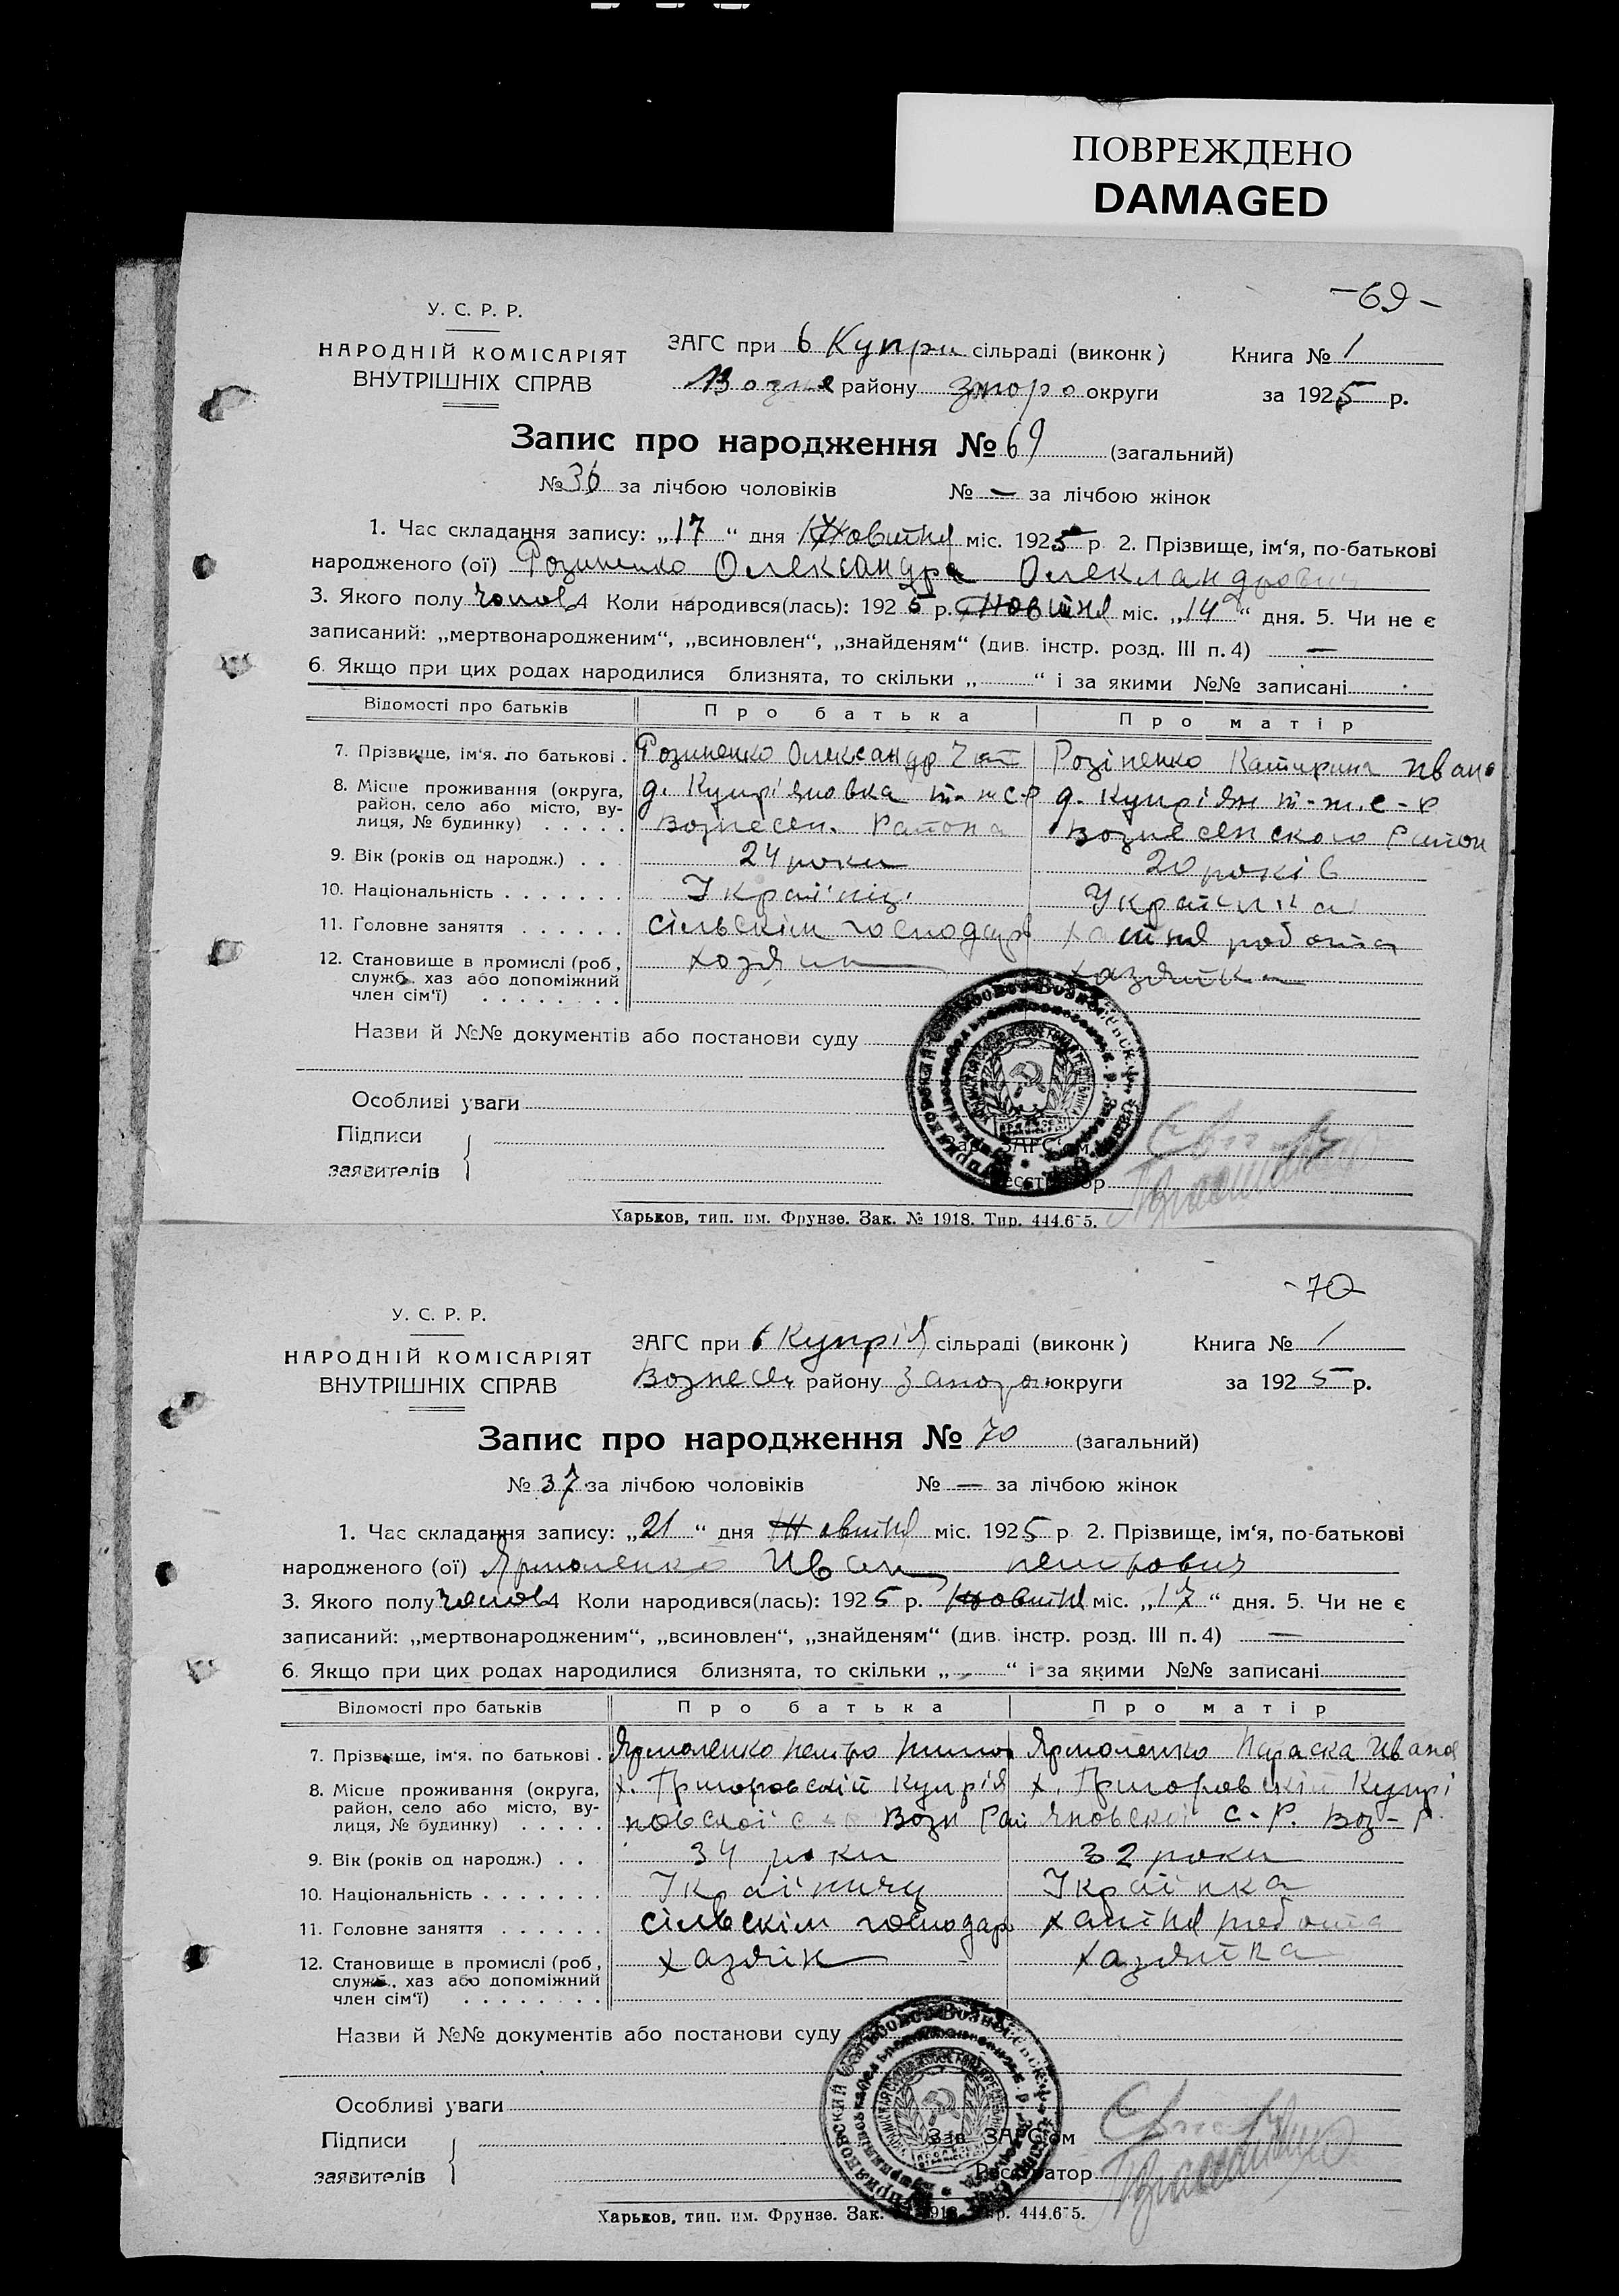 ПОВРЕЖДЕНО
DAMAGED
-69-
У. С. Р. Р.
НАРОДНІЙ КОМІСАРІЯТ
ВНУТРІШНІХ СПРАВ
ЗАГС при Купри сільраді (виконк)
Возне району округи
Книга № 1
за 1925 р.
Запис про народження № 69 (загальний)
№ 36 за лічбою чоловіків № — за лічбою жінок
1. Час складання запису: „17“ дня Жовтня міс. 1925 р 2. Прізвище, ім‘я, по-батькові
народженого (ої) Розиненко Олександра Олександрович
3. Якого полу чолов 4 Коли народився(лась): 1925 р. Жовтня міс. „14“ дня. 5. Чи не є
записаний: „мертвонародженим“, „всиновлен“, „знайденям“ (див. інстр. розд. III п. 4) —
6. Якщо при цих родах народилися близнята, то скільки „ “ і за якими №№ записані
Відомості про батьків Про батька Про матір
7. Прізвище, ім‘я, по батькові . Розиненко Олександр Розіненко Катирина Ивано
8. Місце проживання (округа, д. Купріяновка д. Купріян
район, село або місто, ву-
лиця, № будинку) . . . . . Вознесен. Района Вознесенского Район
9. Вік (років од народж.) . . 24 роки 20 років
10. Національність . . . . . . . Українц. Українка
11. Головне заняття . . . . . . сільскім господар хатня работа
12. Становище в промислі (роб, хозяин хазяйка
служб. хаз або допоміжний
член сім‘ї) . . . . . . . .
Назви й №№ документів або постанови суду
Особливі уваги
Підписи
заявителів
Зав ЗАГС‘ом
Реєстратор
Харьков, тип. им. Фрунзе. Зак. № 1918. Тир. 444.675.
-70-
У. С. Р. Р.
НАРОДНІЙ КОМІСАРІЯТ
ВНУТРІШНІХ СПРАВ
ЗАГС при Купрія сільраді (виконк)
Вознесен району Запорож округи
Книга № 1
за 1925 р.
Запис про народження № 70 (загальний)
№ 37 за лічбою чоловіків № — за лічбою жінок
1. Час складання запису: „21“ дня Жовтня міс. 1925 р 2. Прізвище, ім‘я, по-батькові
народженого (ої) Ярмоленко Иван петрович
3. Якого полу чолов 4 Коли народився(лась): 1925 р. Жовтня міс. „17“ дня. 5. Чи не є
записаний: „мертвонародженим“, „всиновлен“, „знайденям“ (див. інстр. розд. III п. 4) —
6. Якщо при цих родах народилися близнята, то скільки „ “ і за якими №№ записані
Відомості про батьків Про батька Про матір
7. Прізвище, ім‘я, по батькові . Ярмоленко петро Ярмоленко Параска Иванов
8. Місце проживання (округа, х. Григоровскій Купрія х. Григоровскій Купрі
район, село або місто, ву-
лиця, № будинку) . . . . . новскої Возн Рай яновскої С-Р. Воз-Р.
9. Вік (років од народж.) . . 34 роки 32 роки
10. Національність . . . . . . . Українка
11. Головне заняття . . . . . . сільскім господар хатня работа
12. Становище в промислі (роб, хазяїн хазяйка
служб. хаз або допоміжний
член сім‘ї) . . . . . . . .
Назви й №№ документів або постанови суду
Особливі уваги
Підписи
заявителів
Зав ЗАГС‘ом
Реєстратор
Харьков, тип. им. Фрунзе. Зак. 1918 444.675.